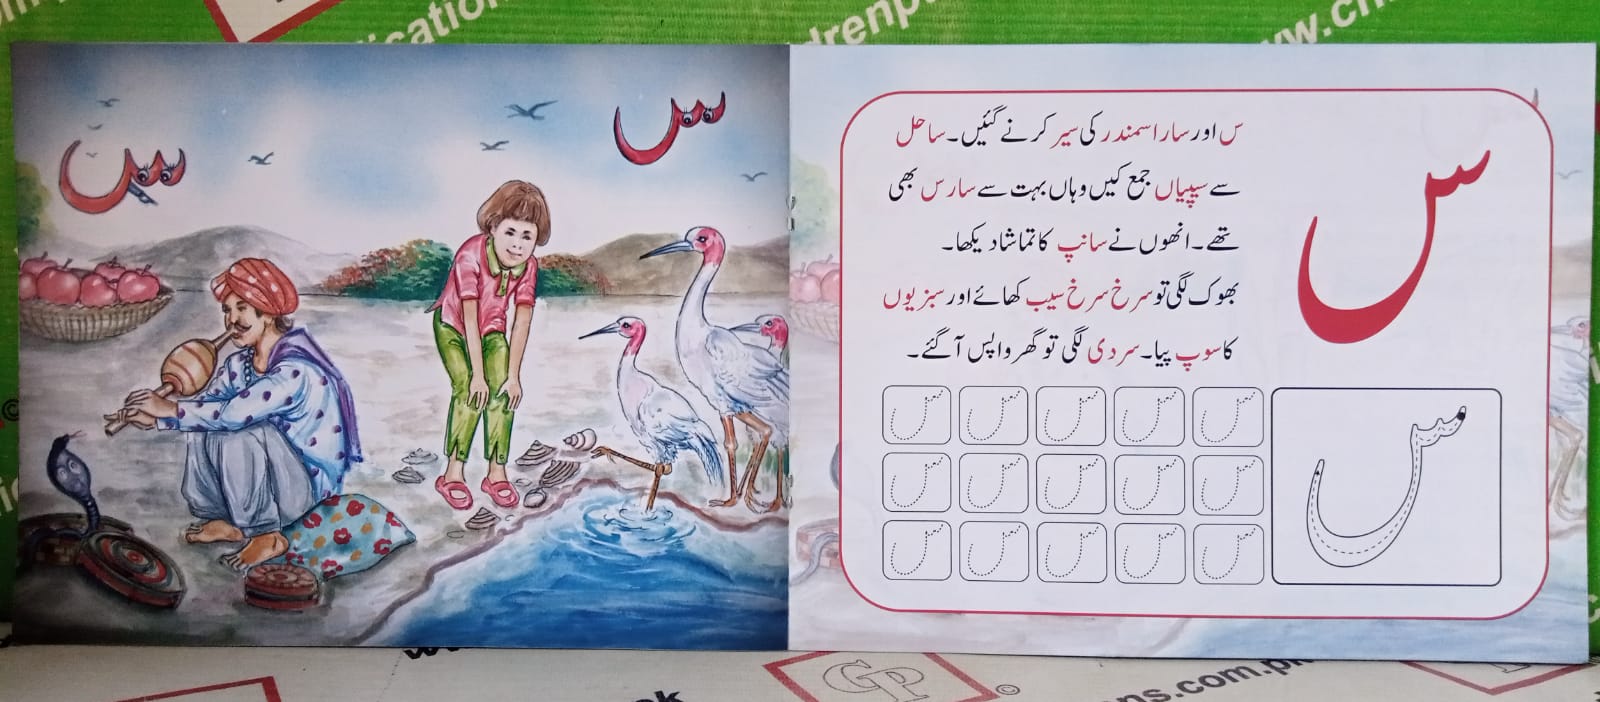 س
س
س اور سارا سمندر کی سیر کرنے گئیں۔ ساحل
سے سیپیاں جمع کیں وہاں بہت سے سارس بھی
تھے۔ انھوں نے سانپ کا تماشا دیکھا۔
بھوک لگی تو سرخ سرخ سیب کھائے اور سبزیوں
کا سوپ پیا۔ سردی لگی تو گھر واپس آ گئے۔
س
س س س س س
س س س س س
س س س س س
س
GP